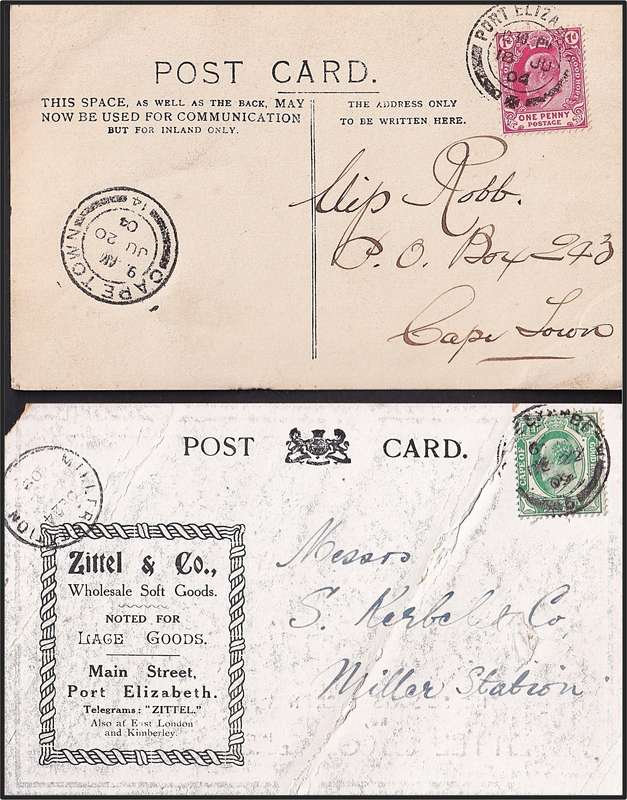 POST CARD.
THIS SPACE, AS WELL AS THE BACK, MAY
NOW BE USED FOR COMMUNICATION
BUT FOR INLAND ONLY.
THE ADDRESS ONLY
TO BE WRITTEN HERE.
PORT ELIZA
JU
04
ONE PENNY
POSTAGE
CAPE TOWN
9. AM
JU 20
04
14
Miss Robb.
P. O. Box 243
Cape Town
POST CARD.
CAPE OF GOOD
MILLER STATION
Zittel & Co.,
Wholesale Soft Goods.
NOTED FOR
LACE GOODS.
Main Street,
Port Elizabeth.
Telegrams: "ZITTEL."
Also at East London
and Kimberley.
Messrs
S. Kerbel & Co
Miller Station